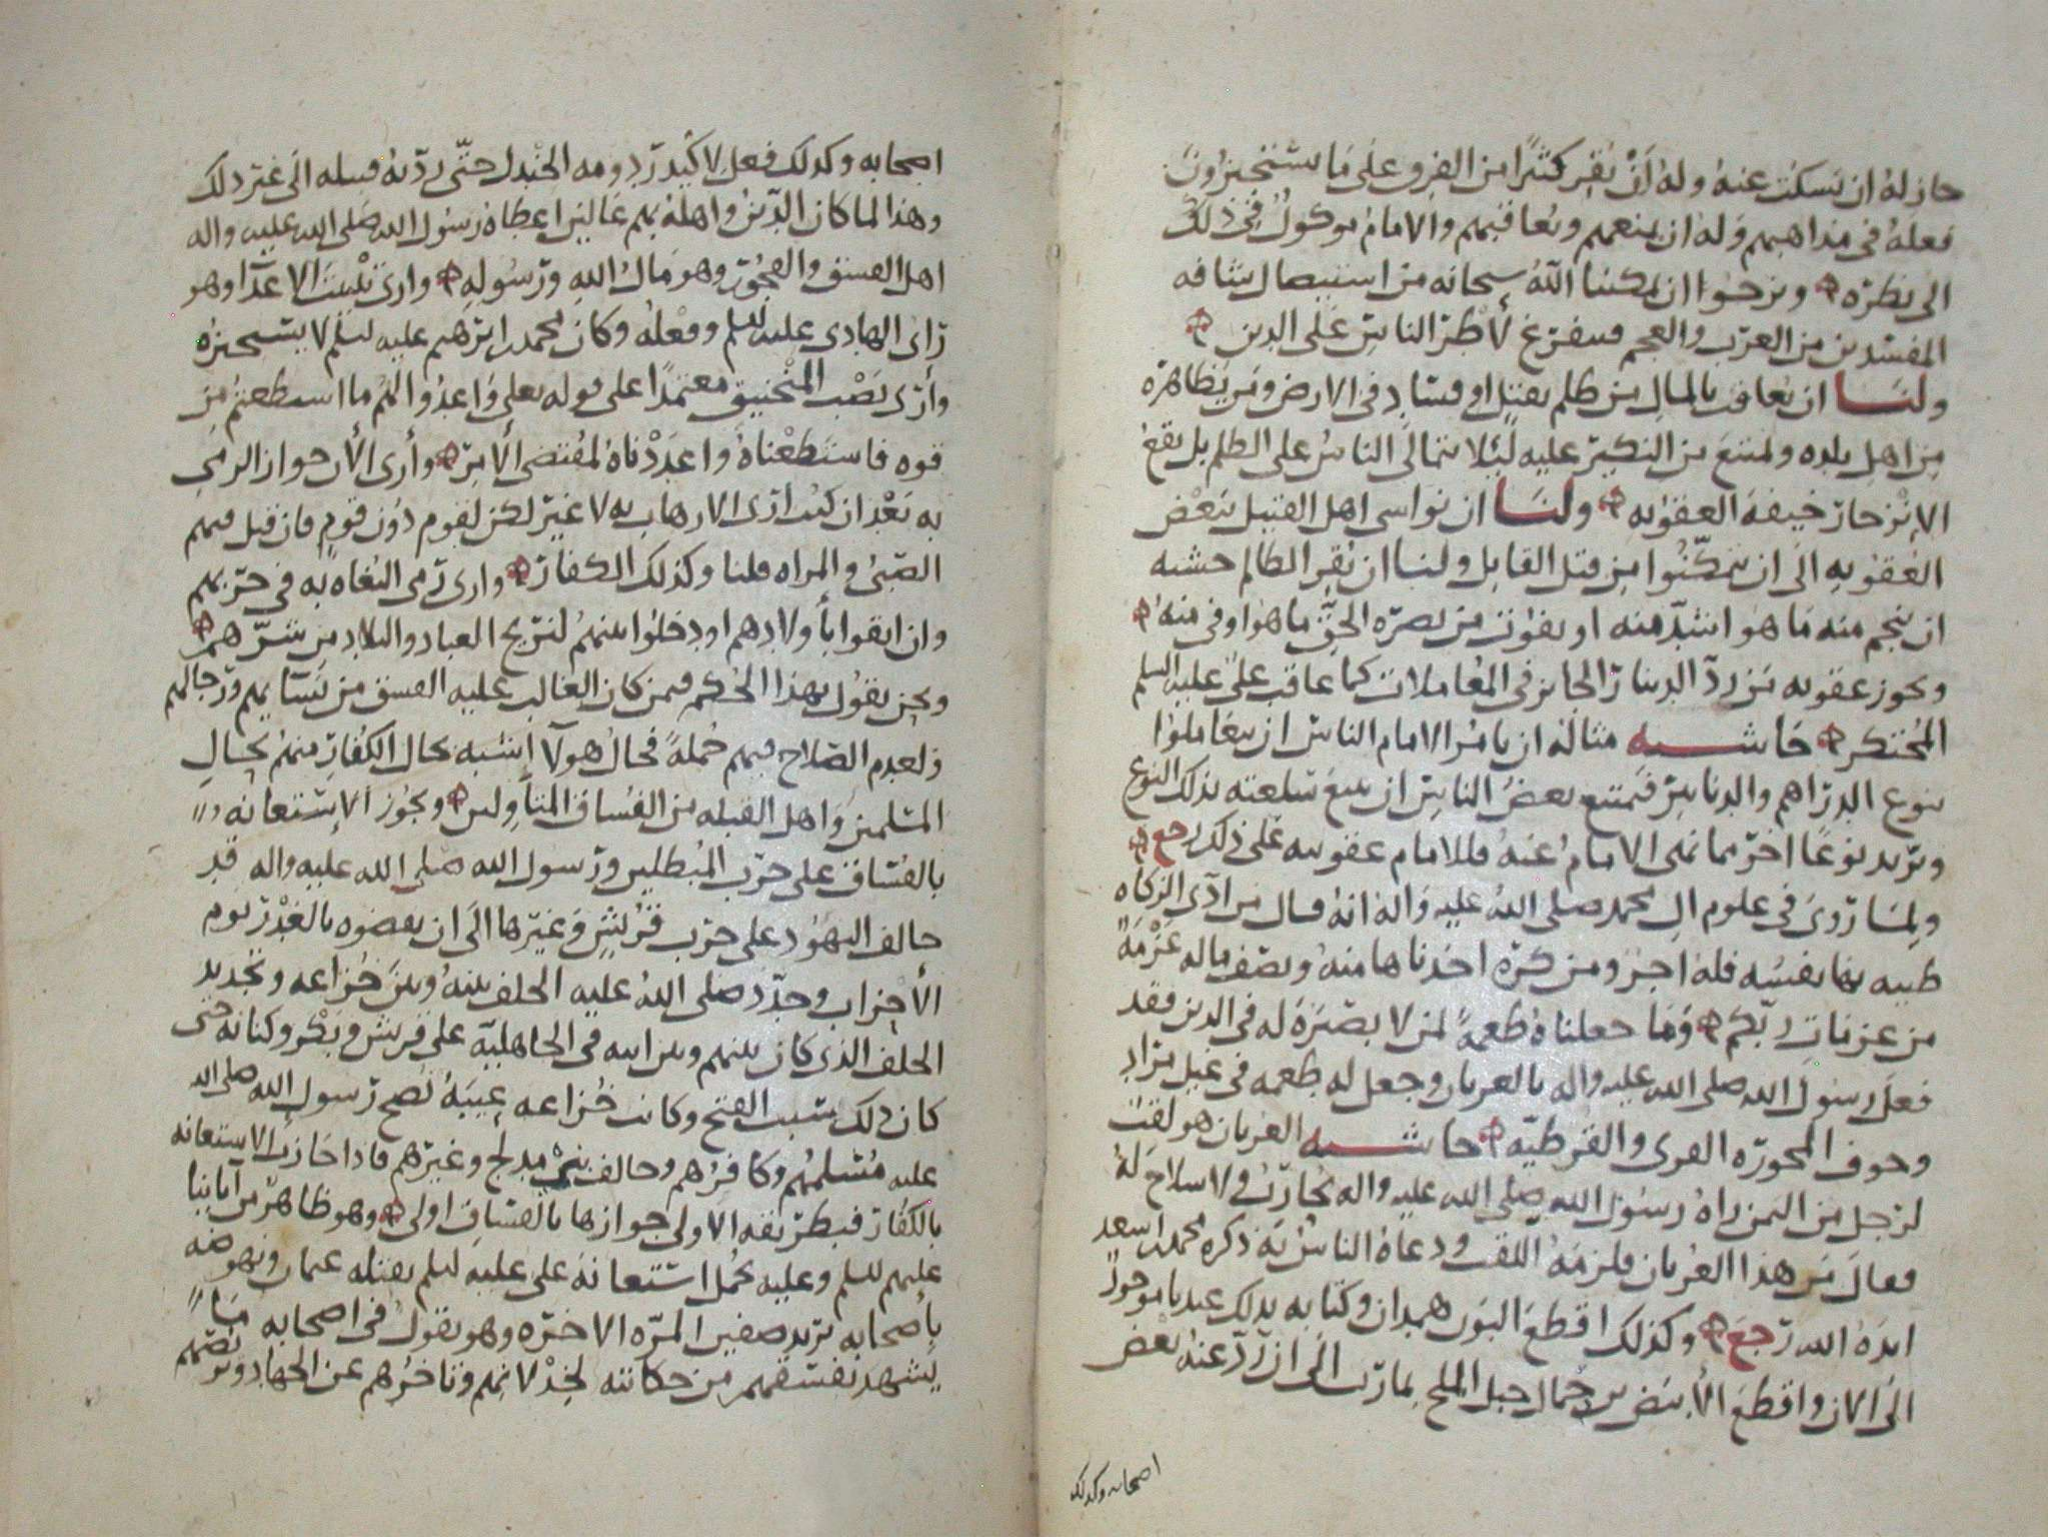 جاز له ان يسكت عنه وله أن يقر كثيرا من الفرق على ما يستخيرون
فعله في مذاهبهم وله ان يمنعهم ويعاقبهم والامام موكول في ذلك
الى نظره ونرجوا ان يمكننا الله سبحانه من استيصال شافه
المفسدين من العرب والعجم فنتفرغ لأطر الناس على الدين
ولنا ان نعاقب بالمال من ظلم بقتل او فساد في الارض ومن يظاهره
من اهل بلده ولمتنع من النكير عليه لئلا يتمالى الناس على الظلم بل يقع
الانزجار خيفة العقوبه ولنا ان نواسي اهل القتيل ببعض
العقوبه الى ان يتمكنوا من قتل القاتل ولنا ان نقر الظالم خشيه
ان ينجم منه ما هو اشد منه او يفوت من نصره الحق ما هو اوفى منه
وتجوز عقوبه من رد الدينار الجايز في المعاملات كما عاقب علي عليه السلم
المحتكر حاشيه مثاله ان يامر الامام الناس ان يتعاملوا
بنوع الدراهم والدنانير فيمتنع بعض الناس ان يبيع سلعته بذلك النوع
ويريد نوعا اخر مما نهى الامام عنه فللامام عقوبته على ذلك رجع
ولما روي في علوم ال محمد صلى الله عليه واله انه قال من ادى الزكاه
طيبه بها نفسه فله اجر ومن كره اخذناها منه ونصف ماله عزمة
من عزمات ربكم وما جعلناه طعمة لمن لا بصيرة له في الدين فقد
فعل رسول الله صلى الله عليه واله بالعريان وجعل له طعمه في عيل مراد
وجوف المحورة القرى والقرطيه حاشيه العريان هو لقب
لرجل من اليمن راه رسول الله صلى الله عليه واله يحارب ولا سلاح له
فقال من هذا العريان فلزمه اللقب ودعاه الناس به ذكره محمد بن اسعد
ايده الله رجع وكذلك اقطع البون همدان وكتابه بذلك عندنا موجود
الى الان واقطع الأبيض بن حمال جبل الملح بمارب الى ان رد عنه بعض
اصحابه وكذلك
اصحابه وكذلك فعل لأكيدر دومه الجندل حتى ردته قبيله الى غير ذلك
وهذا لما كان الدين واهله بهم غالبين اعطاه رسول الله صلى الله عليه واله
اهل الفسق والفجور وهو مال الله ورسوله وارى تبييت الاعدا وهو
رأي الهادي عليه السلم وفعله وكان محمد بن ابراهيم عليه السلم لا يستجيزه
وأرى نصب المنجنيق معتمدا على قوله تعلى واعدوا لهم ما استطعتم من
قوه فاستطعناه واعددناه لمقتضى الأمر وأرى الأن جواز الرمي
به بعد ان كنت ارى الارهاب به لا غير لكن لقوم دون قوم فان قيل فيهم
الصبي والمراه قلنا وكذلك الكفار وارى رمي البغاه به في حربهم
وان اتقوا بأولادهم او دخلوا بينهم لنريح العباد والبلاد من شرهم
ونحن نقول بهذا الحكم فيمن كان الغالب عليه الفسق من نسايهم ورجالهم
ولعدم الصلاح فيهم جملة فحال هولآ اشبه بحال الكفار منهم بحال
المسلمين واهل القبله من الفساق المتأولين وتجوز الاستعانه
بالفساق على حرب المبطلين ورسول الله صلى الله عليه واله قد
حالف اليهود على حرب قريش وغيرها الى ان نقضوه بالغدر يوم
الأحزاب وجدد صلى الله عليه الحلف بينه وبين خزاعه وتجديد
الحلف الذي كان بينهم وبين ابيه في الجاهلية على قريش وبكر وكنانه حتى
كان ذلك سبب الفتح وكانت خزاعه عيبة نصح رسول الله صلى الله
عليه مسلمهم وكافرهم وحالف بني مدلج وغيرهم فاذا جازت الاستعانه
بالكفار فبطريقه الاولى جوازها بالفساق اولى وهو ظاهر من آبائنا
عليهم السلم وعليه تحمل استعانة علي عليه السلم بقتله عثمان ونهوضه
باصحابه يريد صفين المره الاخره وهو يقول في اصحابه ما
يشهد بفسقهم من حكايته لخذلانهم وتاخرهم عن الجهاد